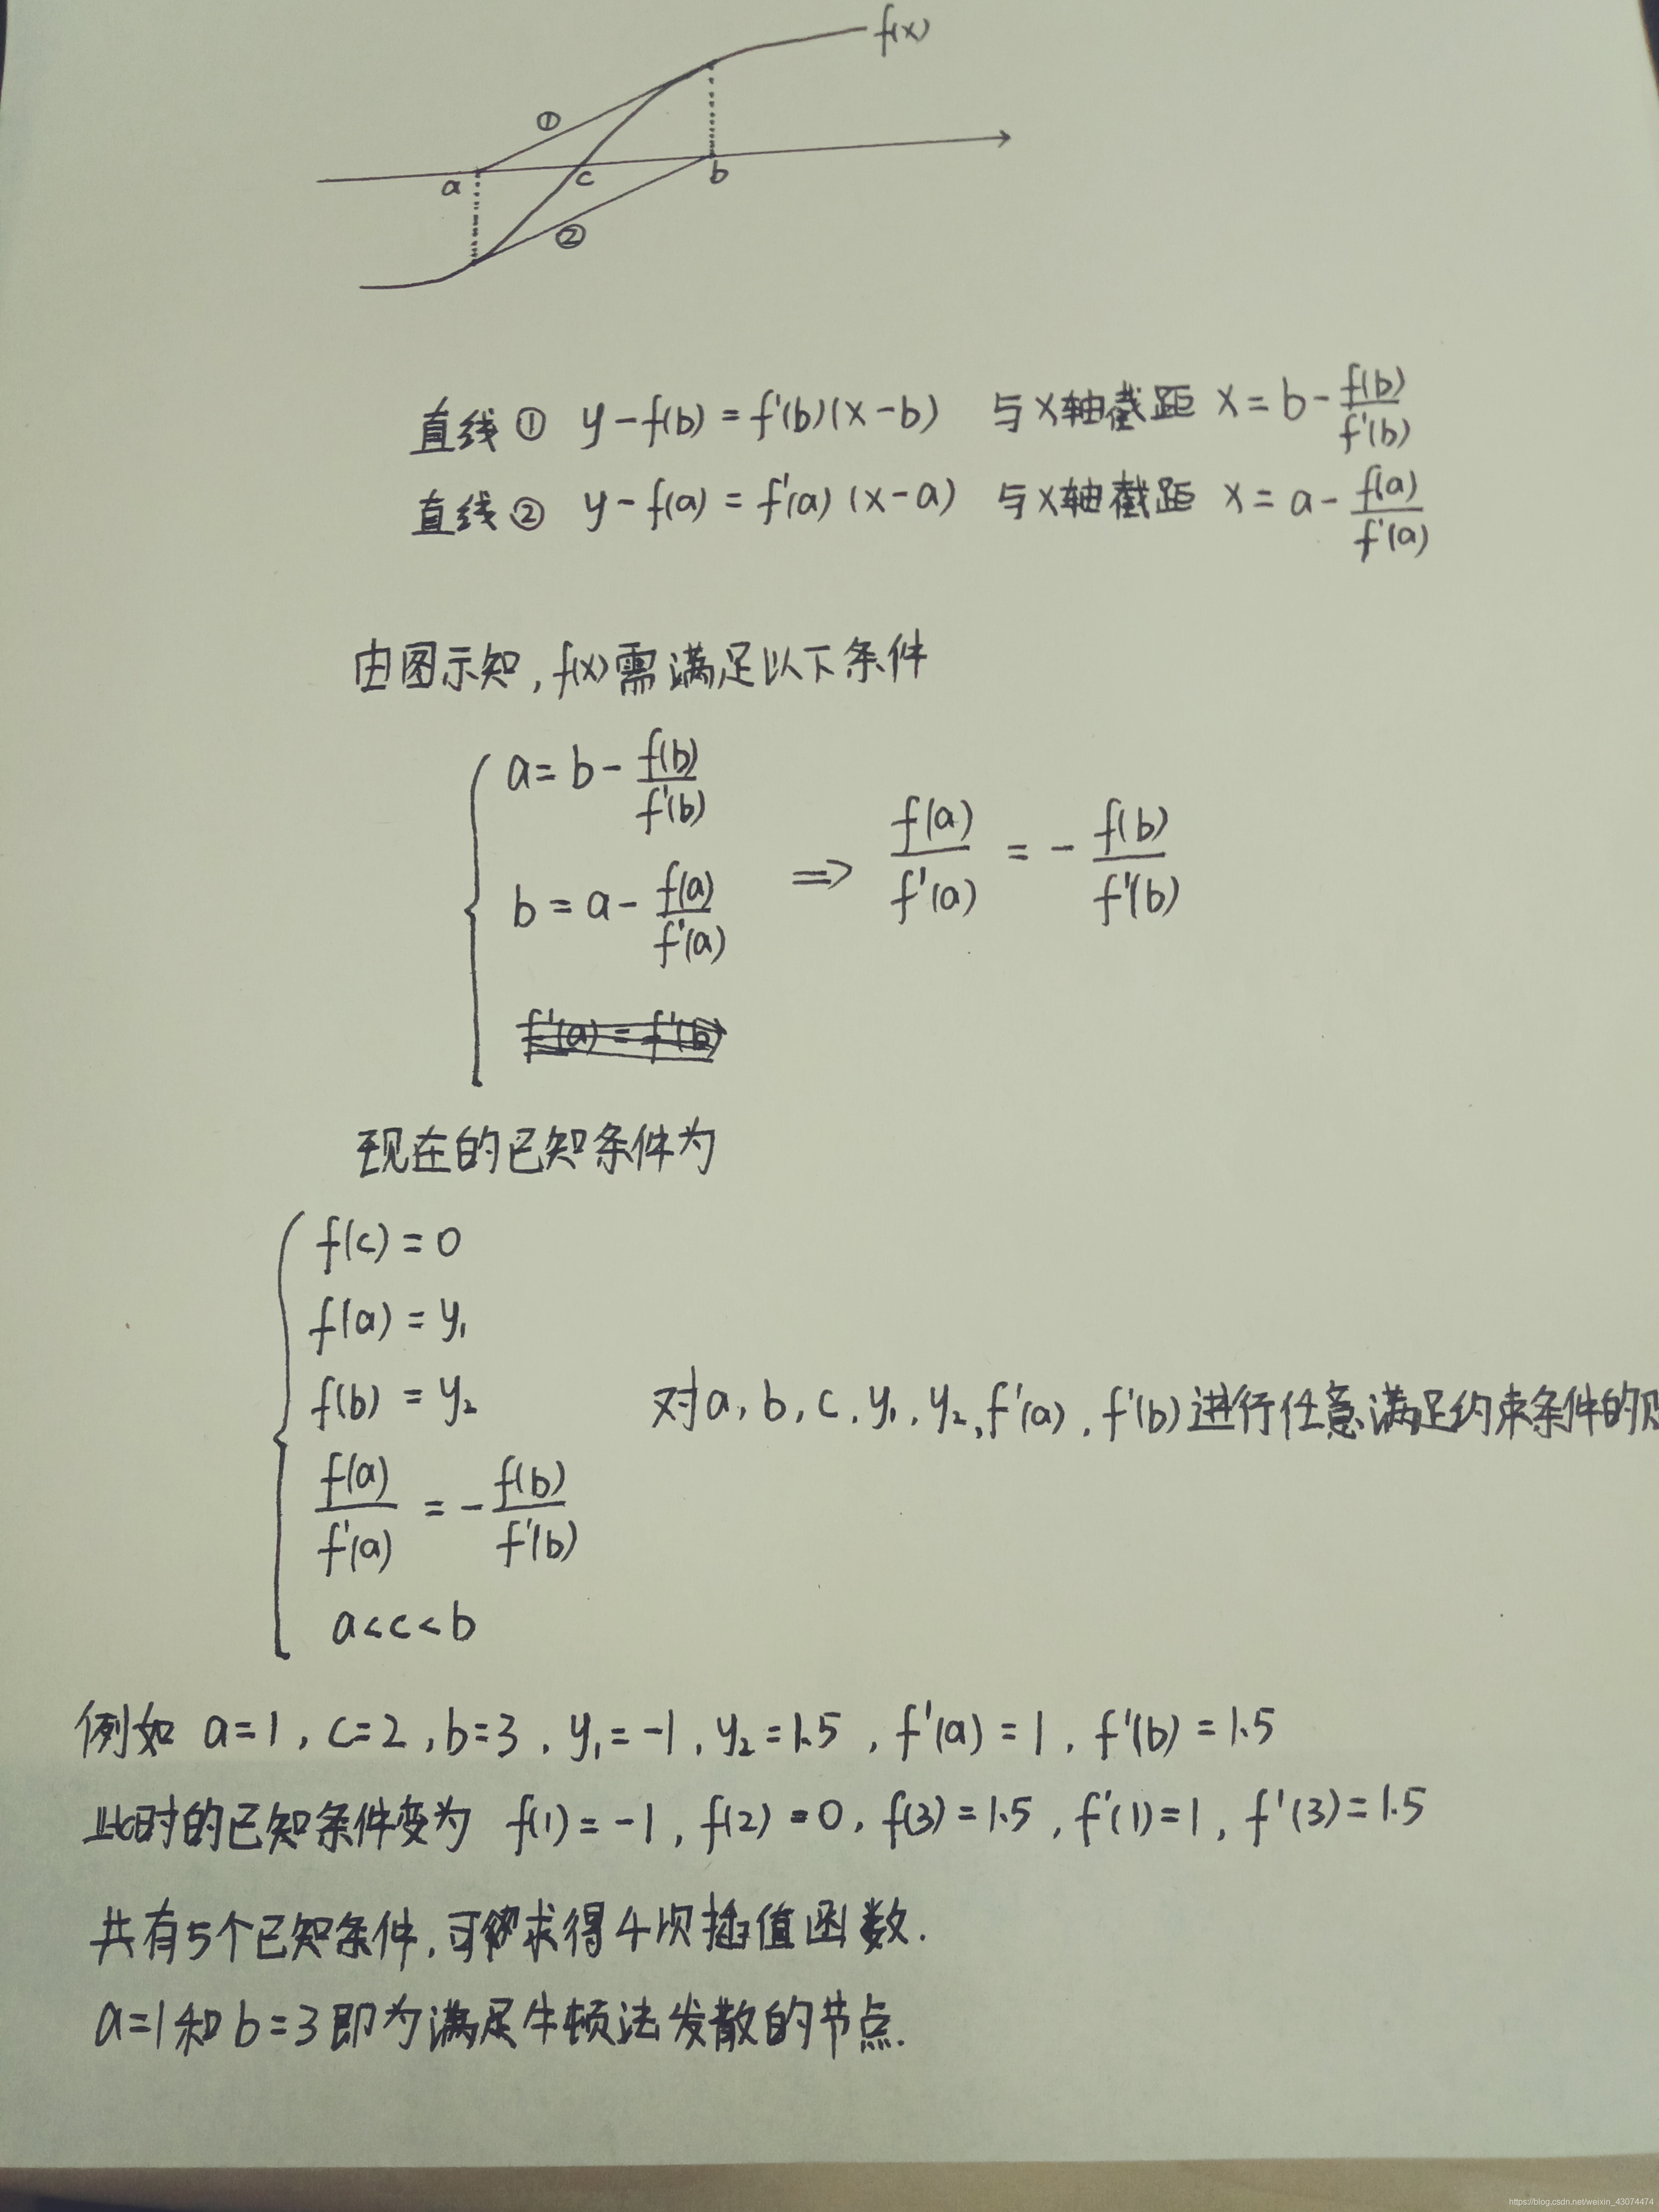 f(x)
①
a
c
b
②
直线① y-f(b)=f'(b)(x-b) 与x轴截距 x=b-f(b)/f'(b)
直线② y-f(a)=f'(a)(x-a) 与x轴截距 x=a-f(a)/f'(a)
由图示知,f(x)需满足以下条件
a=b-f(b)/f'(b)
b=a-f(a)/f'(a) ⇒ f(a)/f'(a)=-f(b)/f'(b)
f'(a)=f'(b)
现在的已知条件为
f(c)=0
f(a)=y₁
f(b)=y₂ 对a,b,c,y₁,y₂,f'(a),f'(b)进行任意满足约束条件的
f(a)/f'(a)=-f(b)/f'(b)
a<c<b
例如 a=1,c=2,b=3,y₁=-1,y₂=1.5,f'(a)=1,f'(b)=1.5
此时的已知条件变为 f(1)=-1,f(2)=0,f(3)=1.5,f'(1)=1,f'(3)=1.5
共有5个已知条件,可求得4次插值函数.
a=1和b=3即为满足牛顿法发散的节点.
https://blog.csdn.net/weixin_43074474